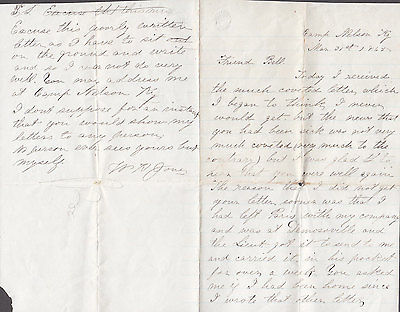 Camp Nelson Ky
Friend Bell
Today I received
the much coveted letter, which
I began to think, I never
would get, but the news that
you had been sick was not very
much coveted very much to the
contrary) but I was glad to
you were well again.
The reason that I did not get
your letter sooner was that I
had left Paris with my company
and was at
the Lieut got it to send to me
and carried it in his pocket
for over a week. You asked
me if I had been home since
I wrote that other letter
P.S.
Excuse this poorly written
letter as I have to sit
on the ground and write
and so I can not do very
well. You may address me
at Camp Nelson, Ky.
I dont suppose for an instant
that you would show my
letters to any person,
No person ever sees yours but
myself.
Wm H Jones